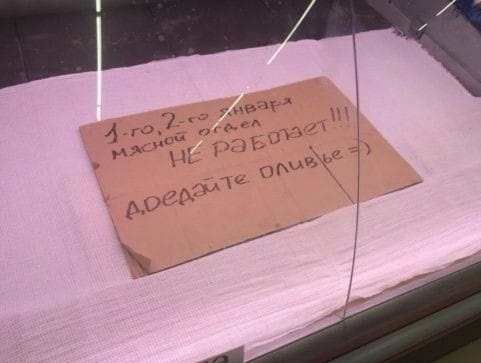 1-го, 2-го января
мясной отдел
НЕ РАБОТАЕТ!!!
ДОЕДАЙТЕ ОЛИВЬЕ =)